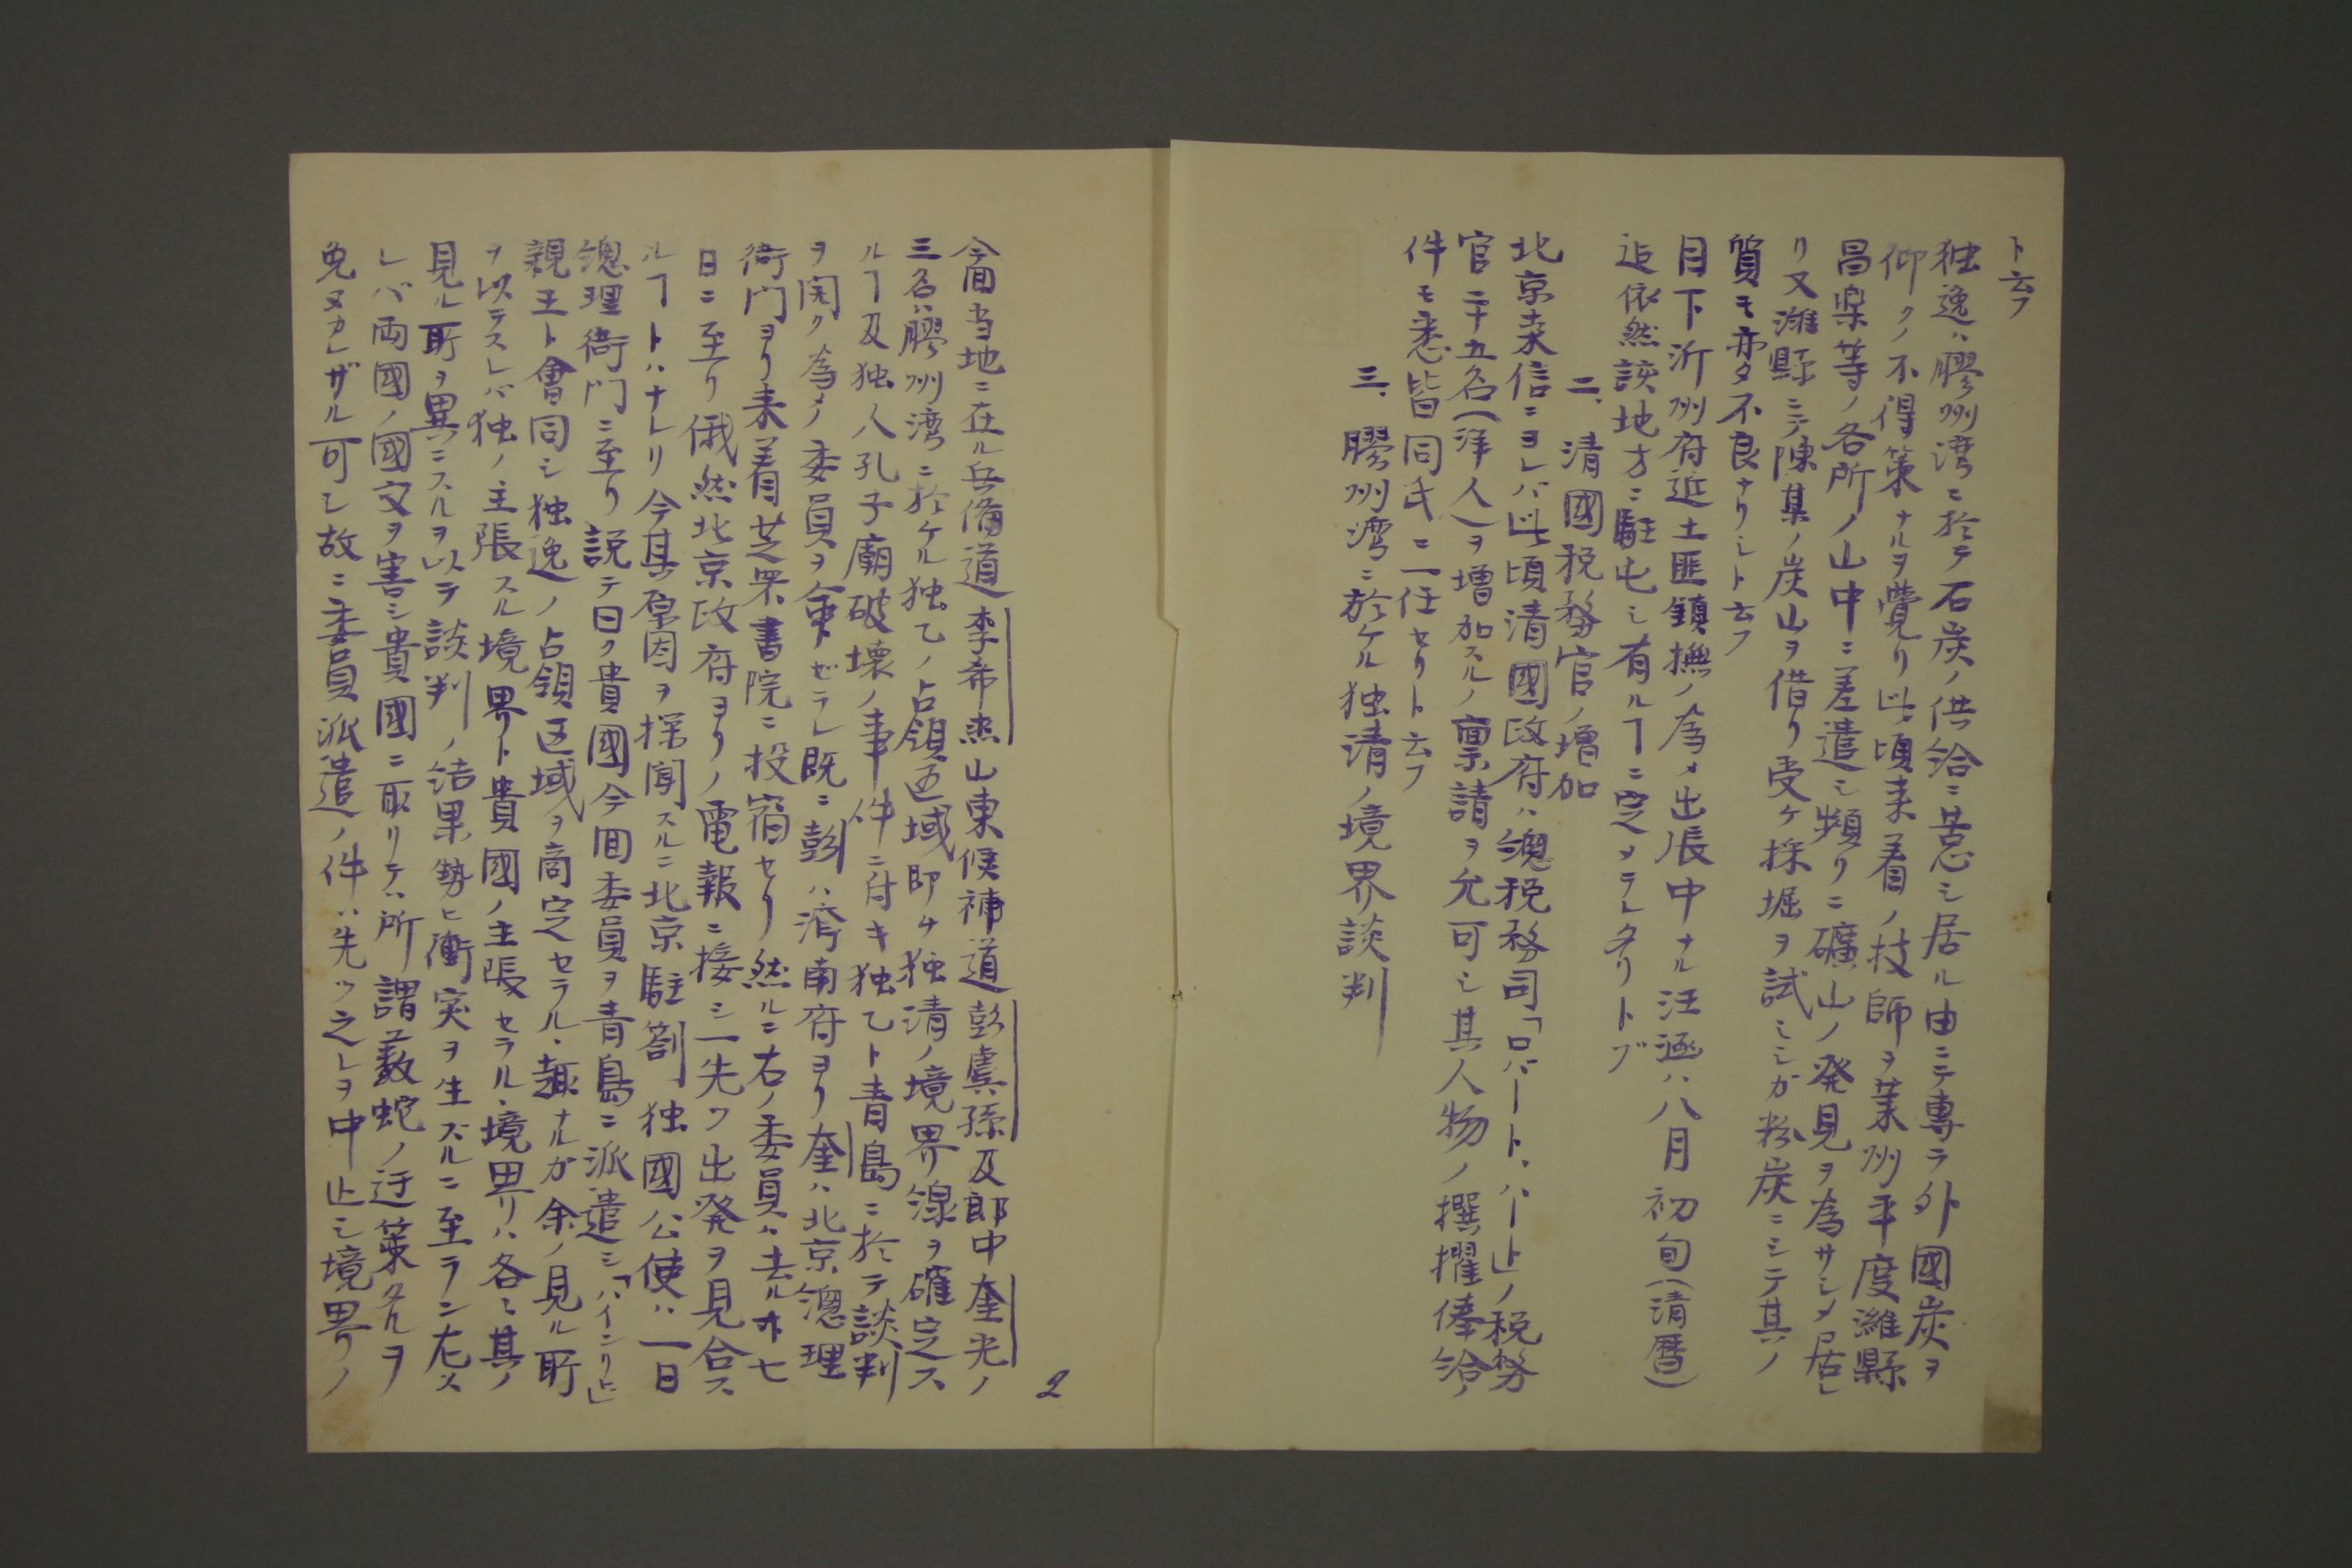 ト云フ
独逸ハ膠州湾ニ於テ石炭ノ供給ニ苦慮シ居ル由ニテ專ラ外國炭ヲ
仰クノ不得策ナルヲ覺リ此頃来着ノ技師ヲ莱州平度濰縣
昌楽等ノ各所ノ山中ニ差遣シ頻リニ礦山ノ発見ヲ為サシメ居レ
リ又濰縣ニテ陳某ノ炭山ヲ借リ受ケ採堀ヲ試ミシガ粉炭ニシテ其ノ
質モ亦タ不良ナリシト云フ
目下沂州府近土匪鎮撫ノ為メ出張中ナル汪 ハ八月初旬(清暦)
迄依然該地方ニ駐屯シ有ルヿニ定ヲラレタリトブ
二、清國税務官ノ増加
北京来信ニヨレバ此頃清國政府ハ總税務司「ロバート、ハート」ノ税務
官二十五名(洋人)ヲ増加スルノ禀請ヲ允可シ其人物ノ撰擢俸給ノ
件モ悉皆同氏ニ一任セリト云フ
三、膠州湾ニ於ケル独清ノ境界談判
2
今回当地ニ在ル兵備道李希杰山東候補道彭虞孫及郎中奎光ノ
三名ハ膠州湾ニ於ケル独乙ノ占領区域即チ独清ノ境界線ヲ確定ス
ルヿ及独人孔子廟破壊ノ事件ニ付キ独乙ト青島ニ於テ談判
ヲ開ク為メ委員ヲ命ゼラレ既ニ彭ハ濟南府ヨリ奎ハ北京總理
衙門ヨリ来着芝罘書院ニ投宿セリ然ルニ右ノ委員ハ去ル廿七
日ニ至リ俄然北京政府ヨリノ電報ニ接シ一先ツ出発ヲ見合ス
ルヿトハナレリ今其原因ヲ探聞スルニ北京駐劄独國公使ハ一日
總理衙門ニ至リ説テ曰ク貴國今回委員ヲ青島ニ派遣シ「ハインリヒ」
親王ト會同シ独逸ノ占領区域ヲ商定セラル、趣ナルガ余ノ見ル所
ヲ以テスレバ独ノ主張スル境界ト貴國ノ主張セラル、境界ハ各〻其ノ
見ル所ヲ異ニスルヲ以テ談判ノ結果勢ヒ衝突ヲ生ズルニ至ラン左ス
レバ両國ノ國交ヲ害シ貴國ニ取リテハ所謂薮蛇ノ迂策タルヲ
免ヌカレザル可シ故ニ委員派遣ノ件ハ先ツ之レヲ中止シ境界ノ